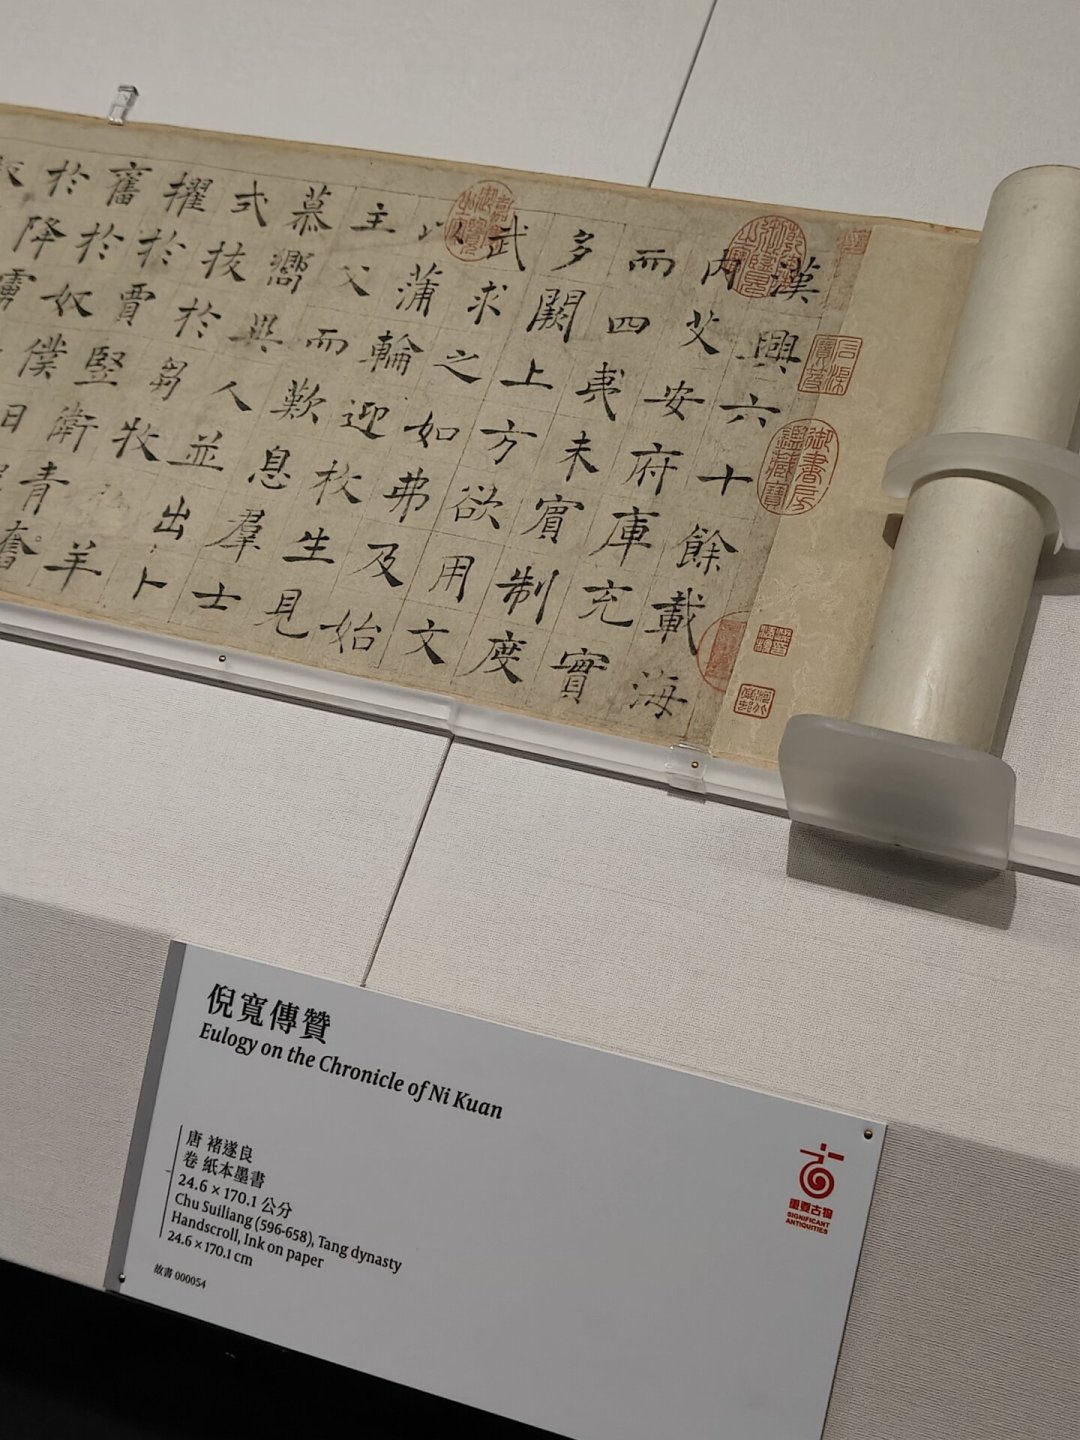 漢興六十餘載海
內艾安府庫充實
而四夷未賓制度
多闕上方欲用文
武求之如弗及始
以蒲輪迎枚生見
主父而歎息羣士
慕嚮異人並出卜
式拔於芻牧羊
擢於賈竪衛青奮
舊於奴僕日
於降虜
石渠寶笈
御書房鑑藏寶
乾隆御覽之寶
嘉慶御覽之寶
倪寬傳贊
Eulogy on the Chronicle of Ni Kuan
唐 褚遂良
卷 紙本墨書
24.6 × 170.1 公分
Chu Suiliang (596-658), Tang dynasty
Handscroll, Ink on paper
24.6 × 170.1 cm
故書 000054
重要古物
SIGNIFICANT
ANTIQUITIES